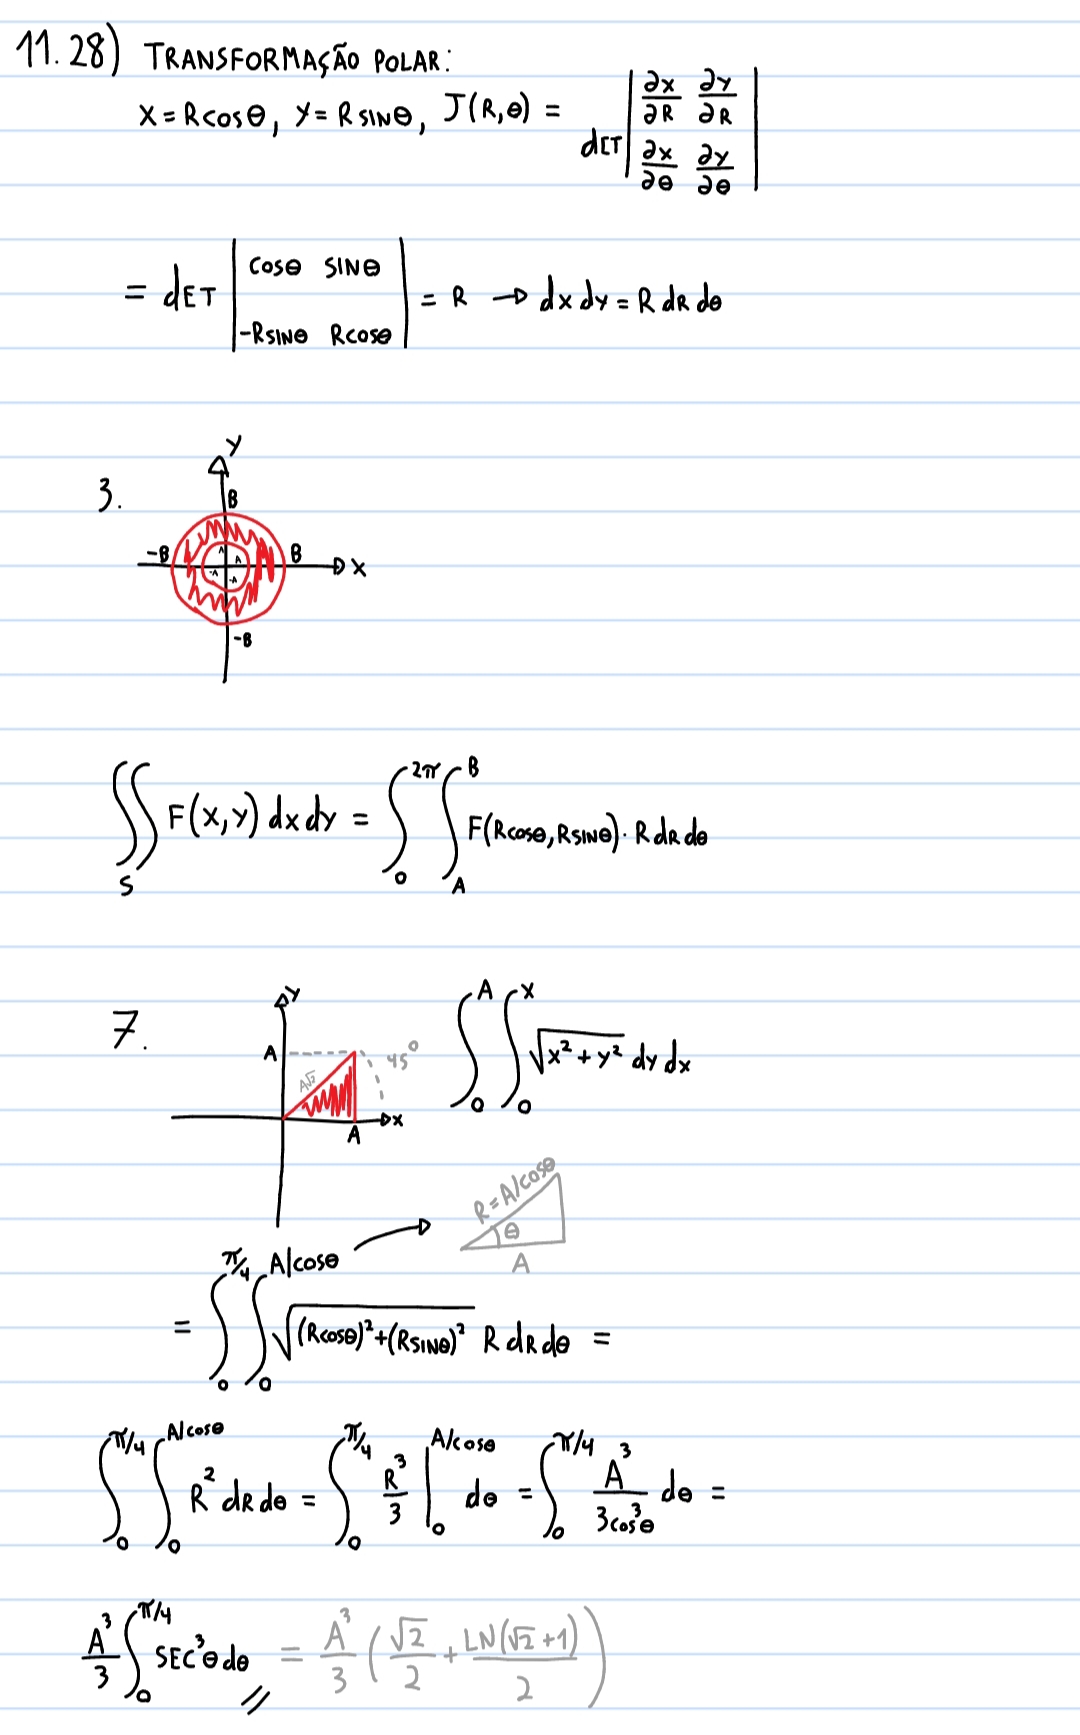 11.28) TRANSFORMAÇÃO POLAR:
X = R cosθ, Y = R SINθ, J(R,θ) = dET | ∂x/∂R ∂y/∂R |
| ∂x/∂θ ∂y/∂θ |
= dET | cosθ SINθ |
| -RSINθ Rcosθ | = R → dx dy = R dR dθ
3.
Y
B
-B A A B X
-A -A
-B
∬_S F(X,Y) dx dy = ∫_0^{2π} ∫_A^B F(Rcosθ, RSINθ) · R dR dθ
7.
Y
A 45° A√2
A X
∫_0^A ∫_0^X √(x² + y²) dy dx
R = A/cosθ
θ
A
= ∫_0^{π/4} ∫_0^{A/cosθ} √((Rcosθ)² + (RSINθ)²) R dR dθ =
∫_0^{π/4} ∫_0^{A/cosθ} R² dR dθ = ∫_0^{π/4} R³/3 |_0^{A/cosθ} dθ = ∫_0^{π/4} A³/3cos³θ dθ =
A³/3 ∫_0^{π/4} SEC³θ dθ // = A³/3 (√2/2 + LN(√2+1)/2)